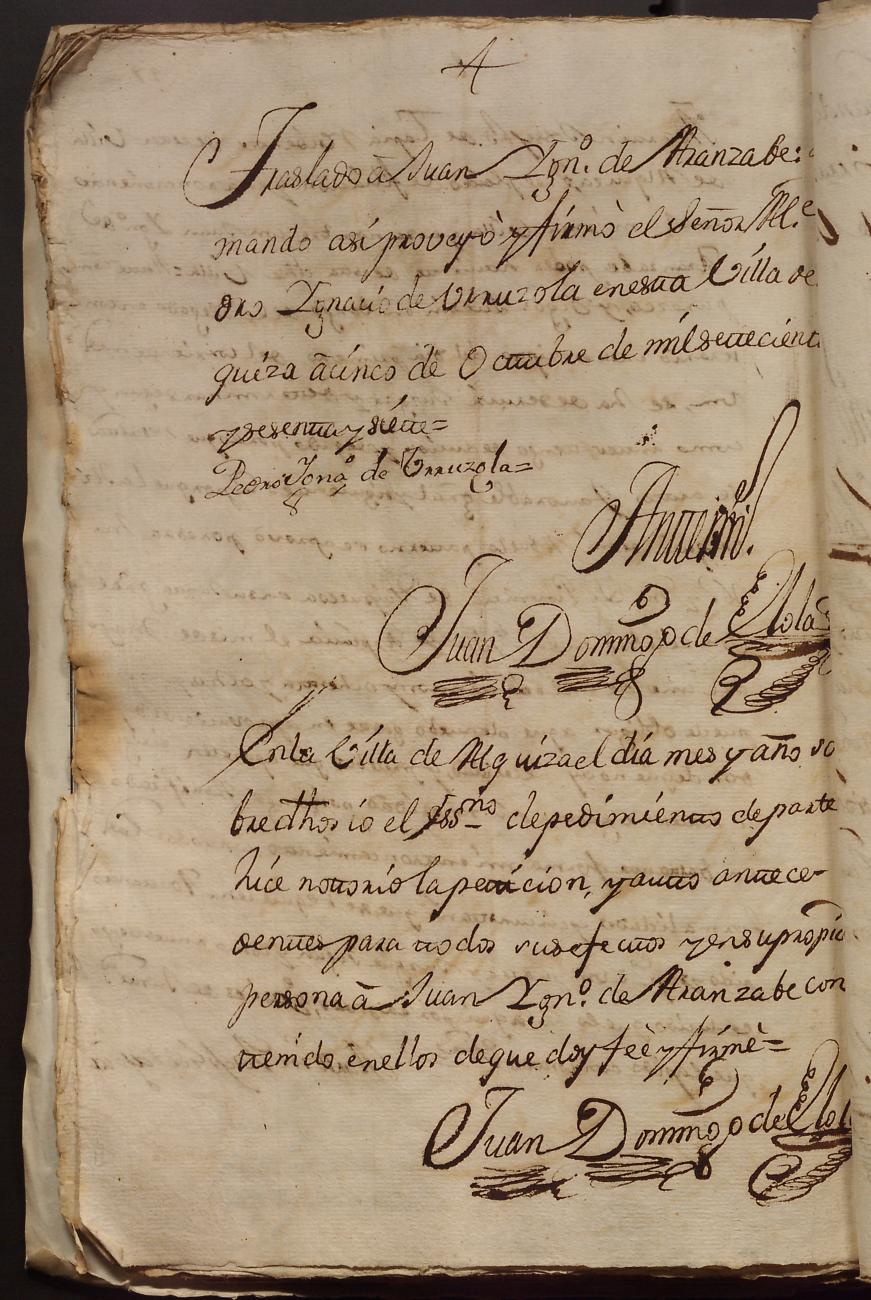 Traslado à Juan Ygn.º de Aranzabe:
mando así proveyò y firmò el Señor Al.e
dro Ygnacio de Urruzola enesta Villa de
quiza à cinco de Octtubre de mil settecientt
y sesentta y siette=
Pedro Ygn.º de Urruzola=
Antte mi
Juan Domingo de Elola
Enla Villa de Alquiza el día mes y año so
bredhos io el Ess.no depedimientto de parte
hice nottorio la petticion, y autto anttece-
denttes para ttodos sus efecttos y ensu propia
persona à Juan Ygn.º de Aranzabe con
ttenido enellos deque doy feè y firmè=
Juan Domingo de Elol